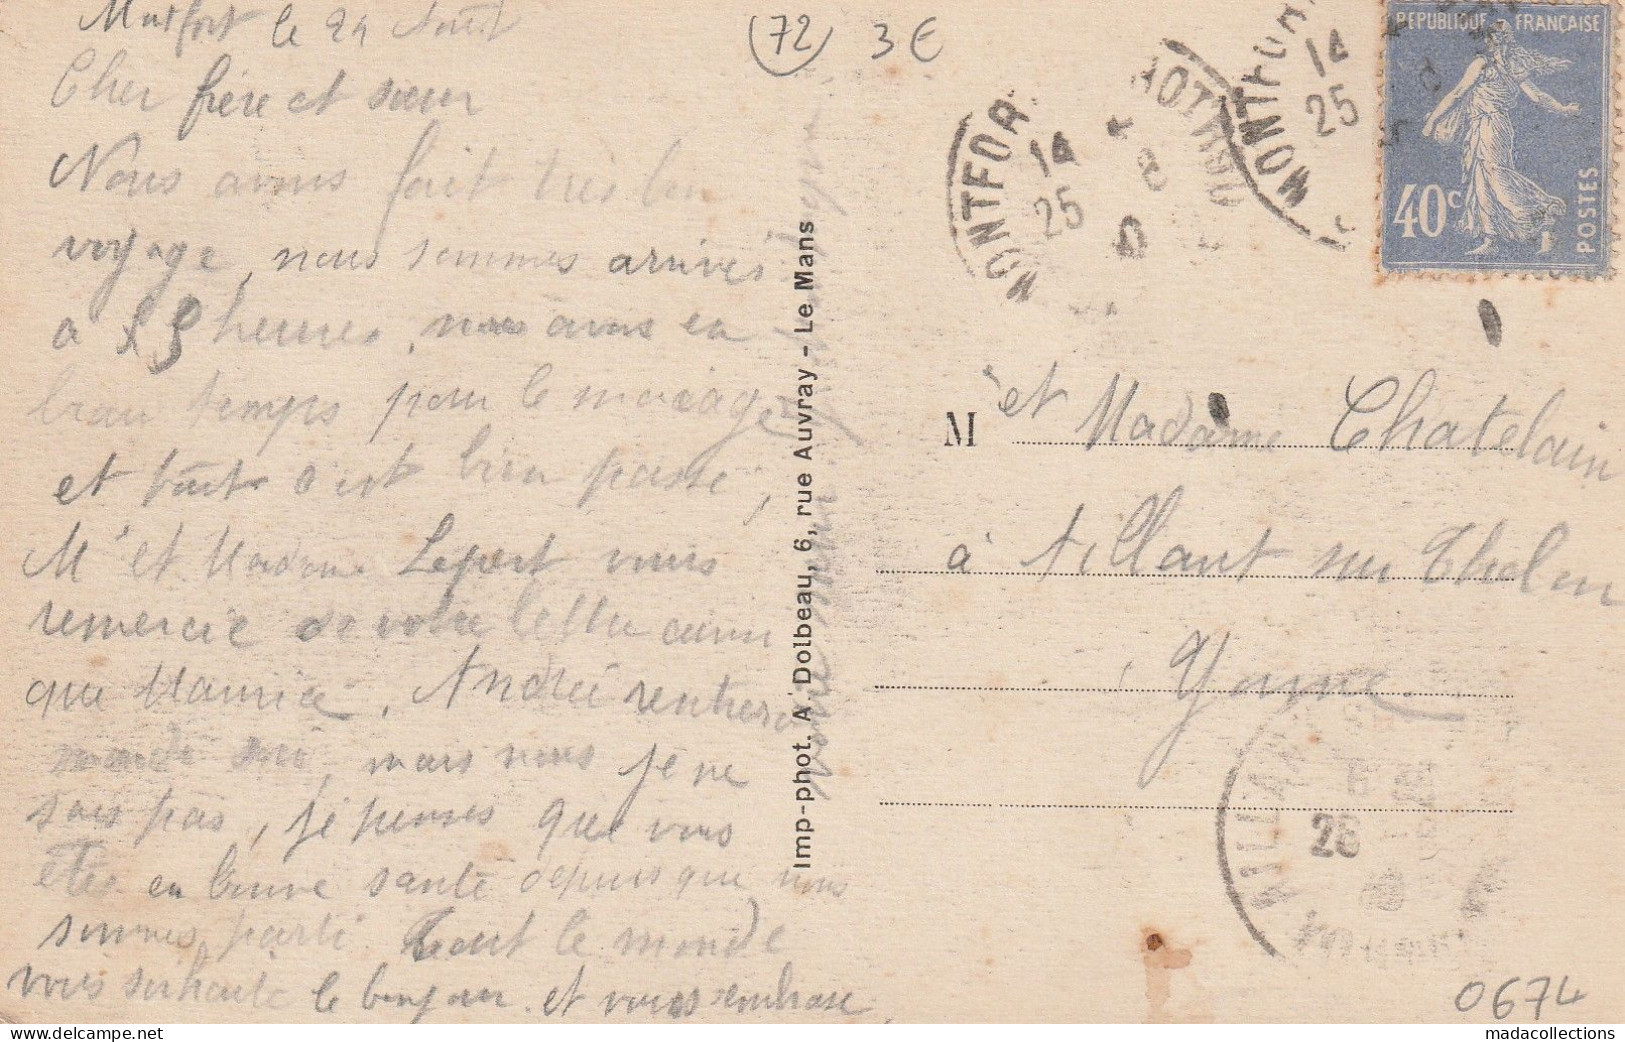 Montfort le 24 Août
Cher frère et sœur
Nous avons fait très bon
voyage, nous sommes arrivés
a heures, nous avons eu
beau temps pour le mariage
et tout c'est bien passé,
M et Madame Lepert vous
remercie de votre lettre ainsi
que Maurice. Andrée rentrera
mais nous je ne
sais pas, je penses que vous
êtes en bonne santé depuis que nous
sommes parti. Tout le monde
vous souhaite le bonjour et vous embrasse
72 3€
Imp-phot. A. Dolbeau, 6, rue Auvray - Le Mans
MONTFOR
14
25
8
MONTFOR
14
25
REPUBLIQUE FRANÇAISE
40c
POSTES
M et Madame Chatelain
à Aillant sur Tholon
Yonne
AILLAN
26
0674
madacollections